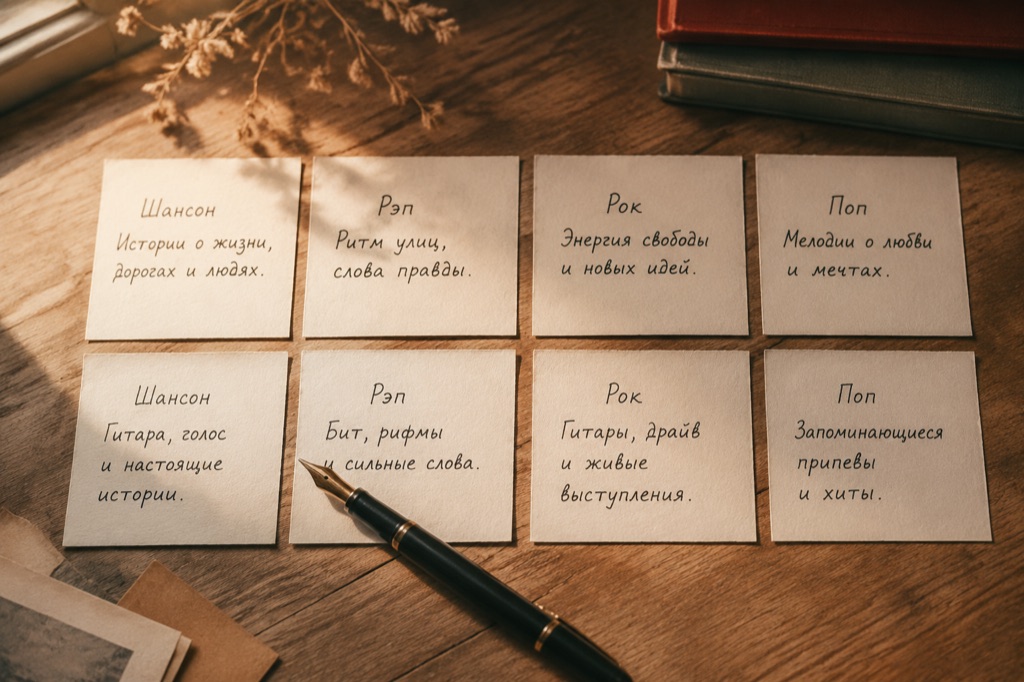 Шансон
Истории о жизни,
дорогах и людях.
Рэп
Ритм улиц,
слова правды.
Рок
Энергия свободы
и новых идей.
Поп
Мелодии о любви
и мечтах.
Шансон
Гитара, голос
и настоящие
истории.
Рэп
Бит, рифмы
и сильные слова.
Рок
Гитары, драйв
и живые
выступления.
Поп
Запоминающиеся
припевы
и хиты.